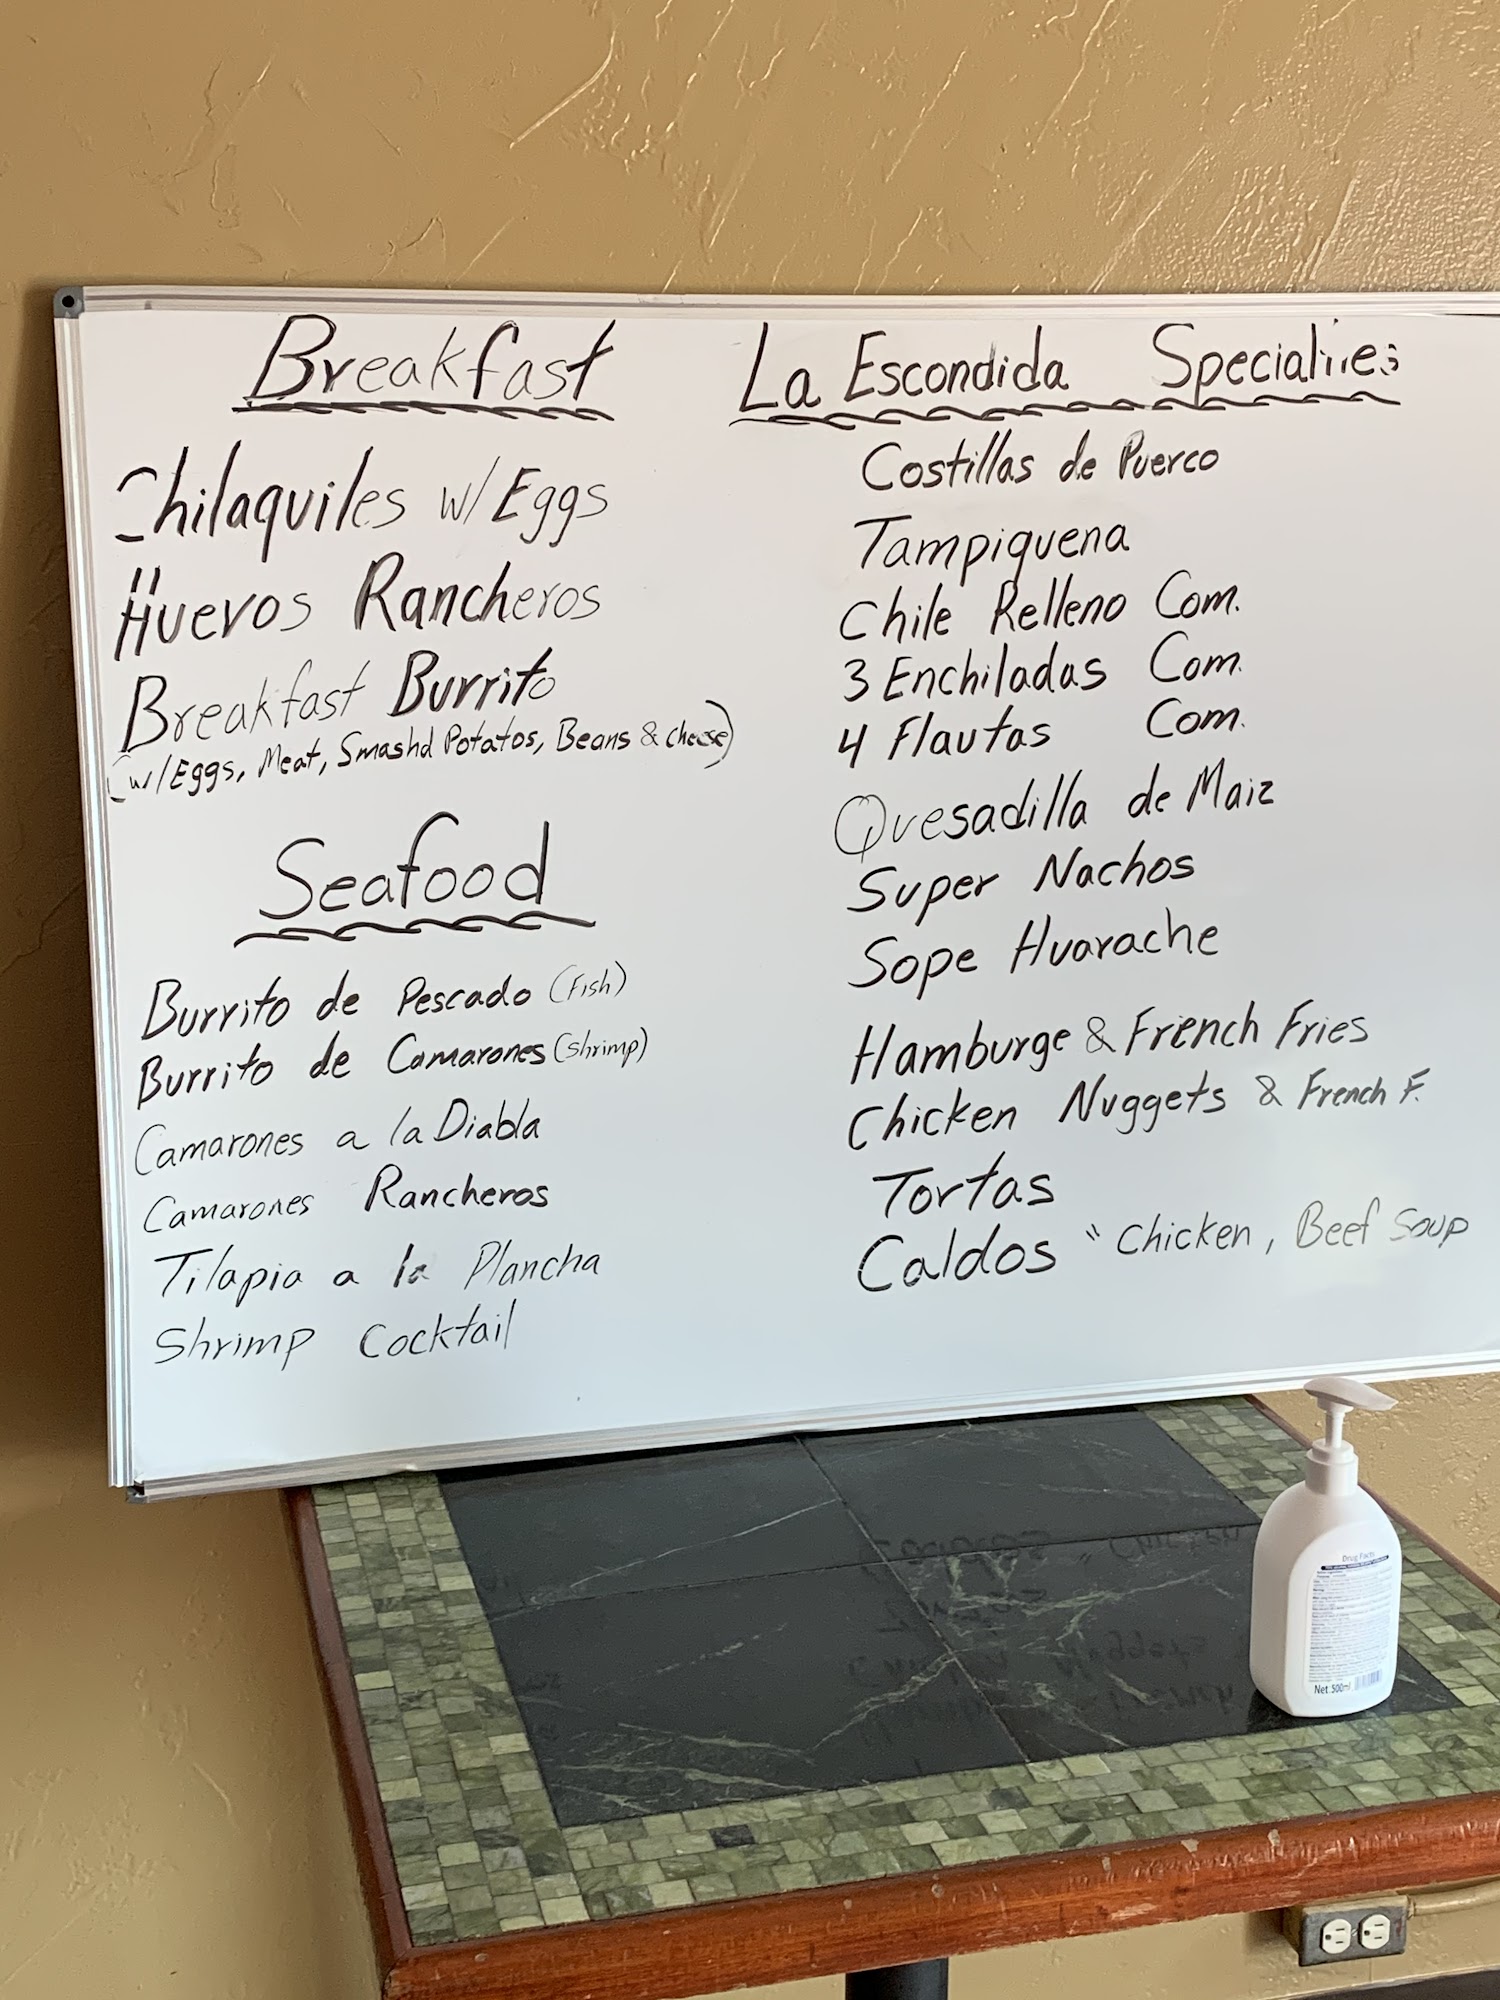 Breakfast
Chilaquiles w/ Eggs
Huevos Rancheros
Breakfast Burrito
(w/Eggs, Meat, Smashd Potatos, Beans & cheese)
Seafood
Burrito de Pescado (Fish)
Burrito de Camarones (Shrimp)
Camarones a la Diabla
Camarones Rancheros
Tilapia a la Plancha
Shrimp Cocktail
La Escondida Specialties
Costillas de Puerco
Tampiquena
Chile Relleno Com.
3 Enchiladas Com.
4 Flautas Com.
Quesadilla de Maiz
Super Nachos
Sope Huarache
Hamburge & French Fries
Chicken Nuggets & French F.
Tortas
Caldos " Chicken, Beef Soup
Drug Facts
Net 500ml